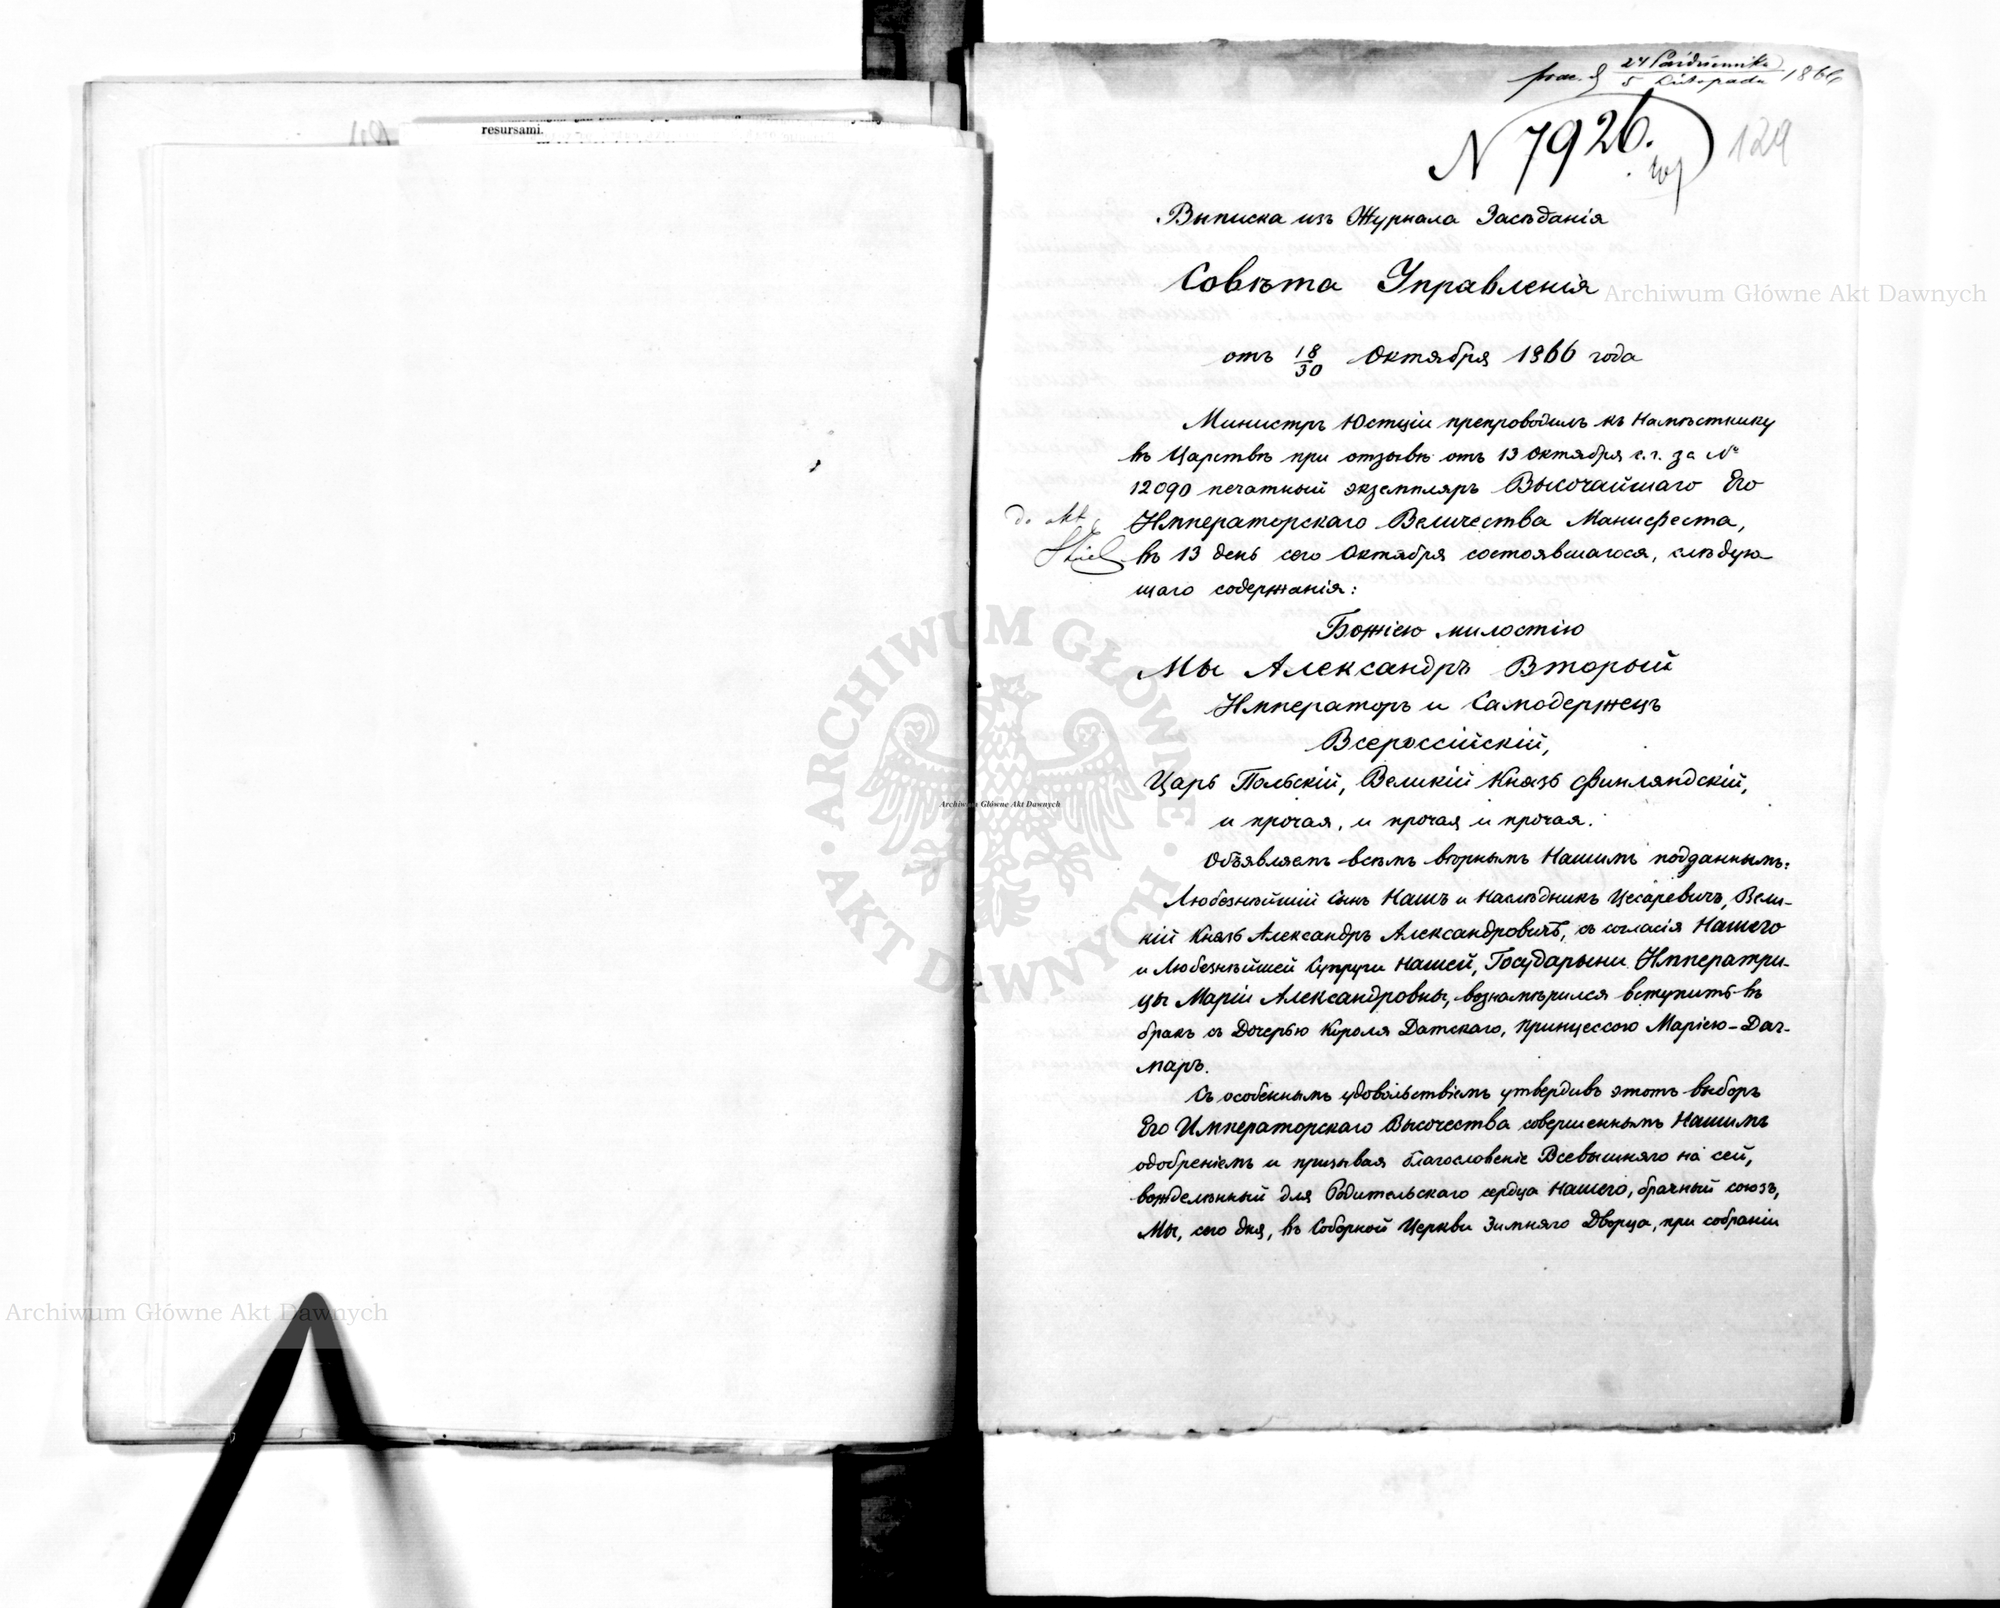 resursami.
24 Października
5 Listopada 1866
N 7926.
129
Выписка изъ Журнала Засѣданія
Совѣта Управленія
отъ 18/30 Октября 1866 года
Министръ Юстиціи препроводилъ къ Намѣстнику
въ Царствѣ при отзывѣ отъ 13 Октября с.г. за №
12090 печатный экземпляръ Высочайшаго Его
do akt
Императорскаго Величества Манифеста,
въ 13 день сего Октября состоявшагося, слѣдую
щаго содержанія:
Божіею милостію
Мы Александръ Второй
Императоръ и Самодержецъ
Всероссійскій,
Царь Польскій, Великій Князь Финляндскій,
и прочая, и прочая и прочая.
Объявляемъ всѣмъ вѣрнымъ Нашимъ подданнымъ:
Любезнѣйшій Сынъ Нашъ и Наслѣдникъ Цесаревичъ, Вели-
кій Князь Александръ Александровичъ, съ согласія Нашего
и Любезнѣйшей Супруги Нашей, Государыни Императри-
цы Маріи Александровны, вознамѣрился вступить въ
бракъ съ Дочерью Короля Датскаго, Принцессою Маріею-Даг-
маръ.
Съ особеннымъ удовольствіемъ утвердивъ этотъ выборъ
Его Императорскаго Высочества совершеннымъ Нашимъ
одобреніемъ и призывая благословеніе Всевышняго на сей,
вожделѣнный для Родительскаго сердца Нашего, брачный союзъ,
Мы, сего дня, въ Соборной Церкви Зимняго Дворца, при собраніи
Archiwum Główne Akt Dawnych
ARCHIWUM GŁÓWNE AKT DAWNYCH
Archiwum Główne Akt Dawnych
Archiwum Główne Akt Dawnych